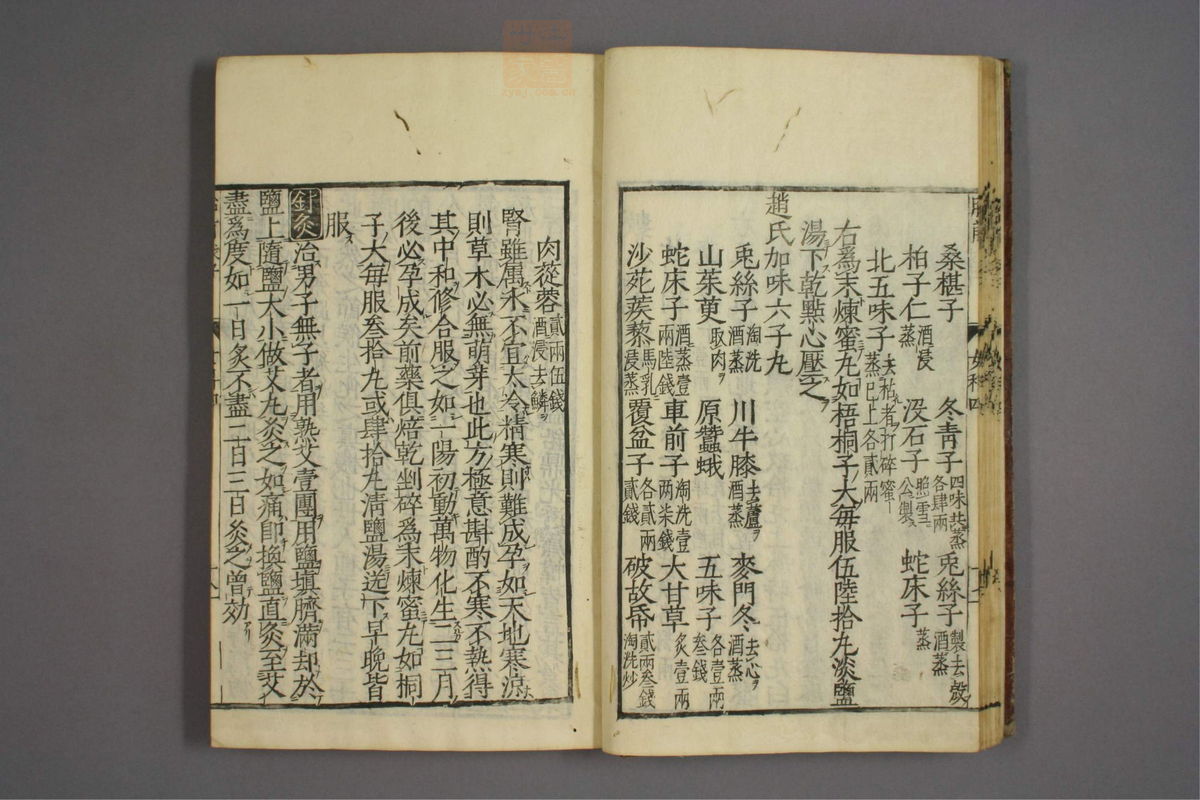 桑椹子 冬靑子 四味共蒸各肆兩 兎絲子 製去殼酒蒸
柏子仁 酒浸蒸 沒石子 照雪公製 蛇床子 蒸
北五味子 去粘者打碎蜜蒸巳上各貳兩
右爲末煉蜜丸如梧桐子大每服伍陸拾丸淡鹽
湯下乾點心壓之
趙氏加味六子丸
兎絲子 淘洗酒蒸 川牛膝 去蘆酒蒸 麥門冬 去心酒蒸
山茱萸 取肉 原蠶蛾 五味子 各壹兩叁錢
蛇床子 酒蒸壹兩陸錢 車前子 淘洗壹兩柒錢 大甘草 炙壹兩
沙苑蒺藜 馬乳浸蒸 覆盆子 各貳兩貳錢 破故帋 貳兩叁錢淘洗炒
肉蓯蓉 貳兩伍錢酒浸去鱗
腎雖属水不宜太冷精寒則難成孕如天地寒凉
則草木必無萌芽也此方極意斟酌不寒不熱得
其中和修合服之如一陽初動萬物化生二三月
後必孕成矣前藥俱焙乾剉碎爲末煉蜜丸如桐
子大每服叁拾丸或肆拾丸淸鹽湯送下早晚皆
服
針灸 治男子無子者用熟艾壹團用鹽填臍滿却於
鹽上隨鹽大小做艾丸灸之如痛卽換鹽直灸至艾
盡爲度如一日炙不盡二百三百灸之曾効
zysj.com.cn